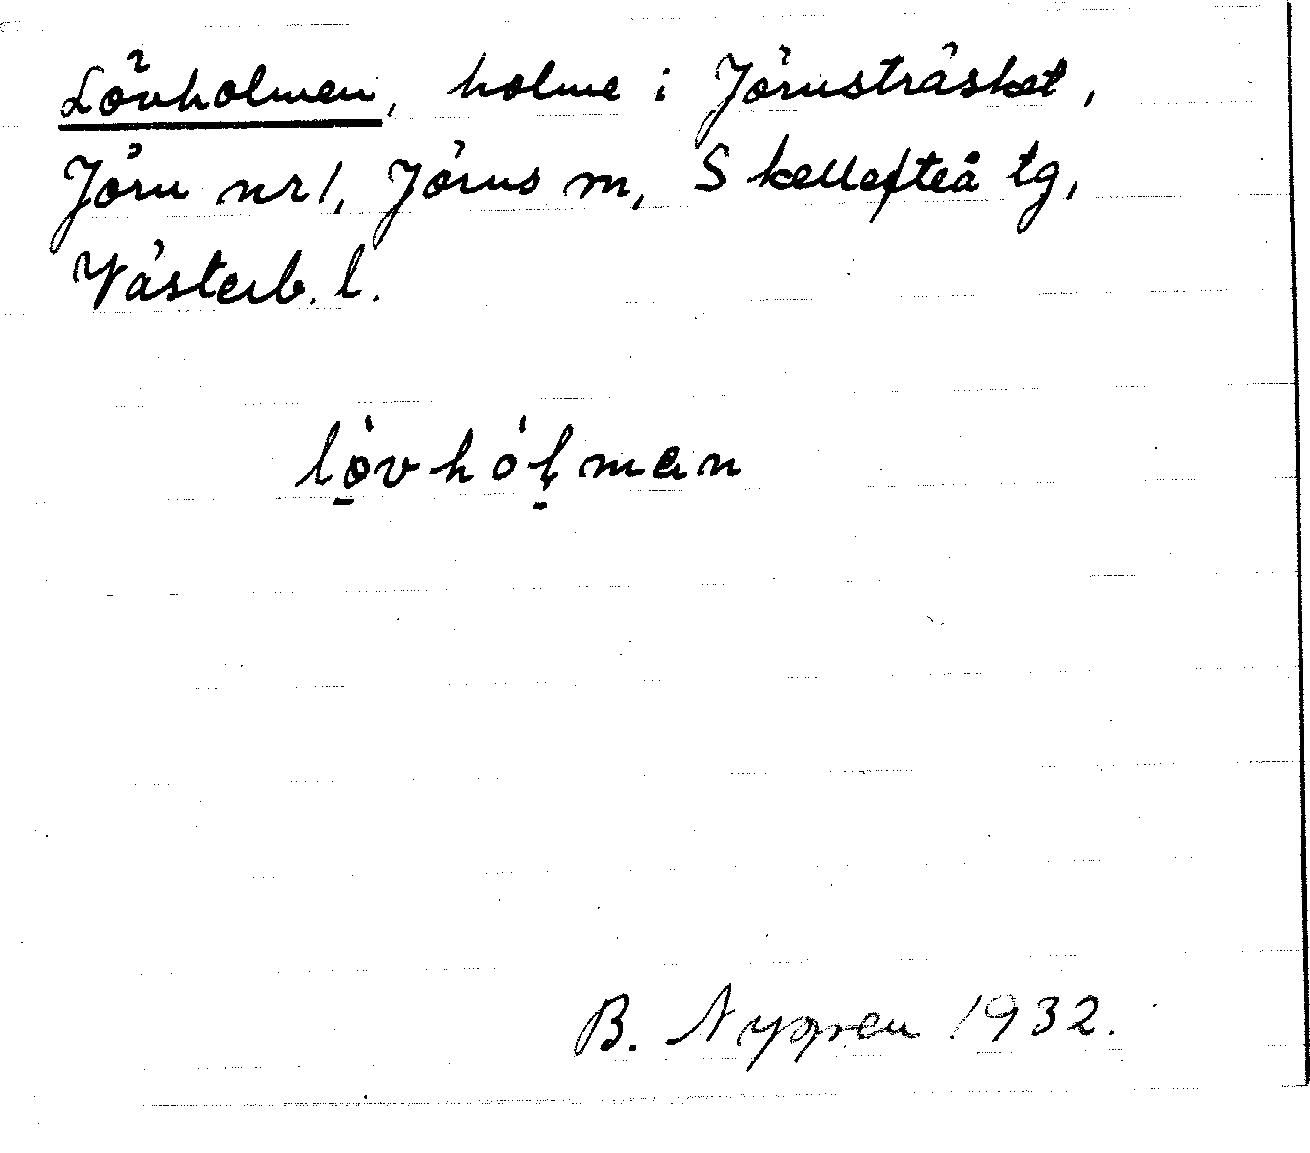 Lövholmen, holme i Jörnsträsket,
Jörn nr 1, Jörns sn, Skellefteå tg,
Västerb. l.
lö̀vhòļman
B. Nygren 1932.